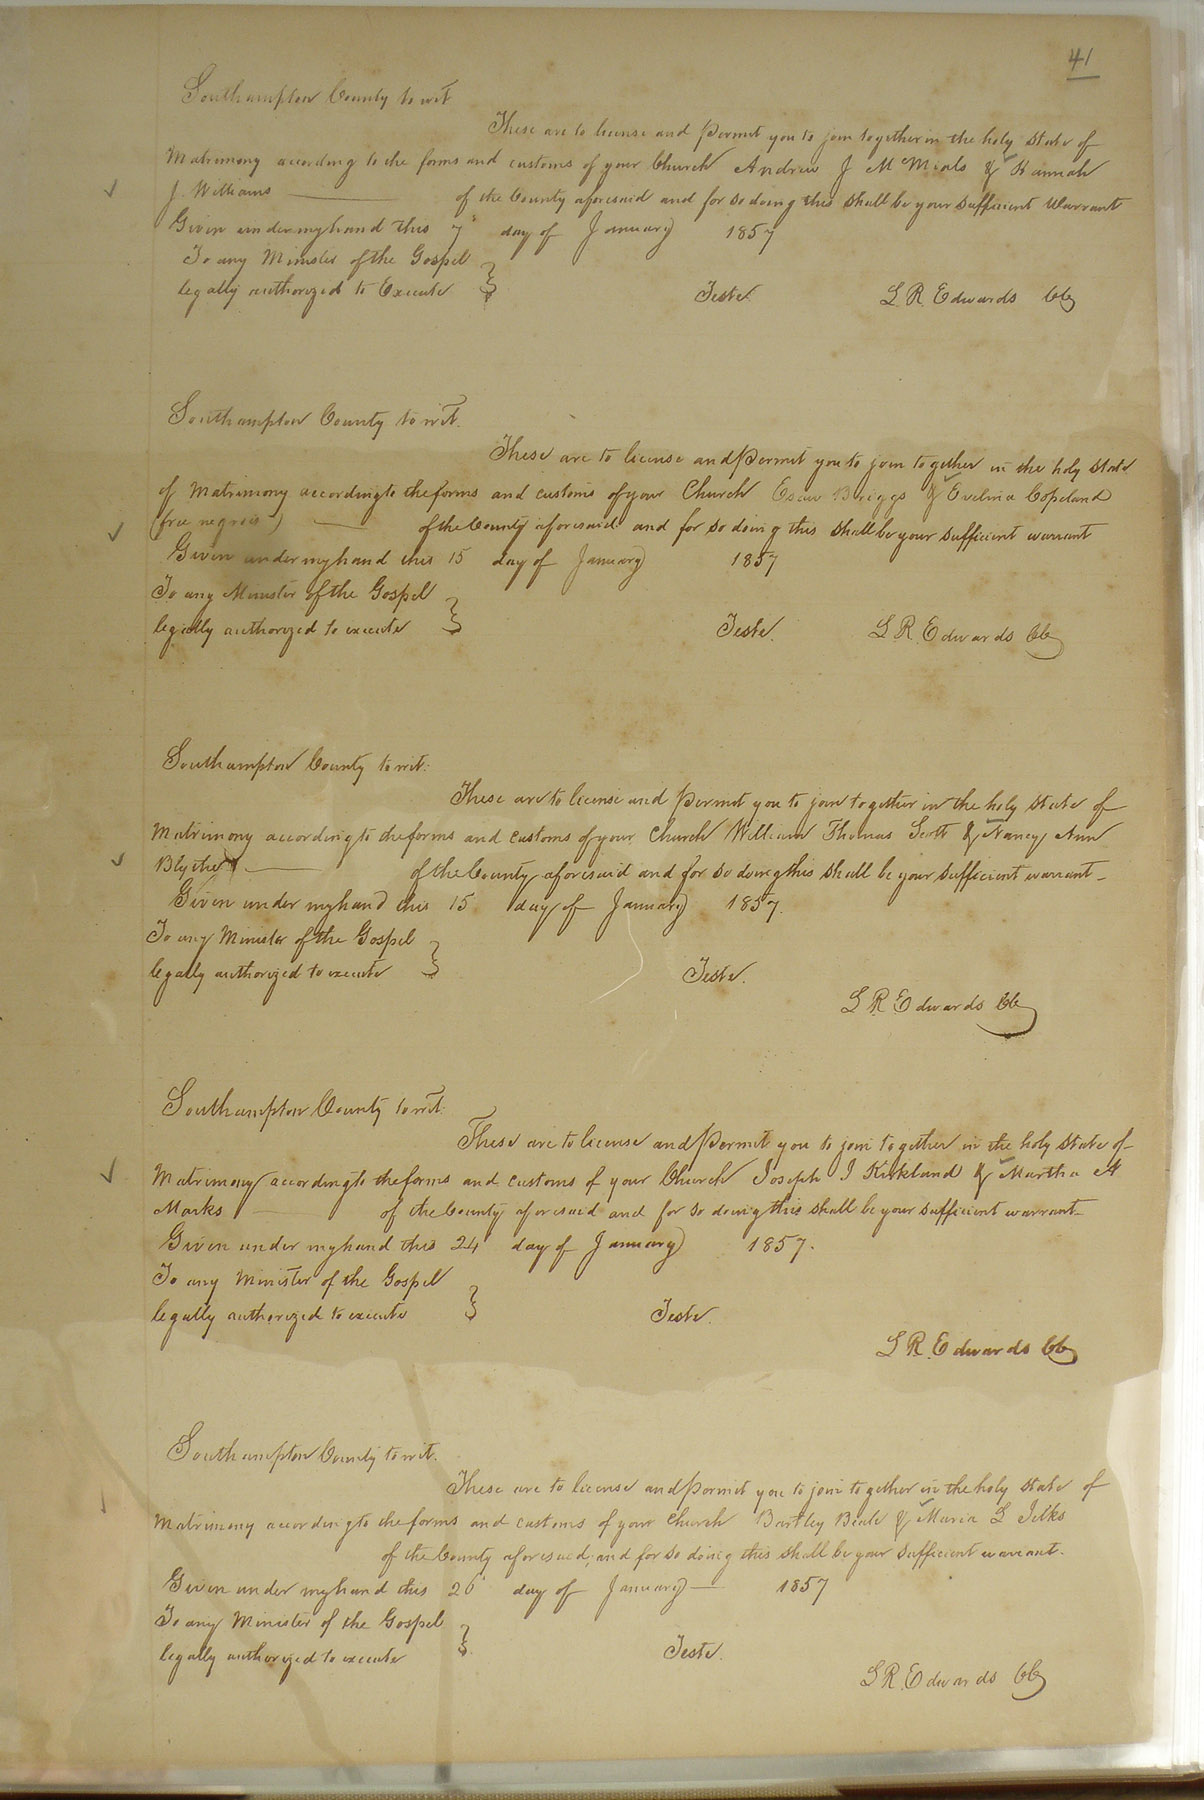 41
Southampton County to wit
These are to license and permit you to join together in the holy state of
Matrimony according to the forms and customs of your Church Andrew J McMials & Hannah
J. Williams of the County aforesaid and for so doing this shall be your sufficient Warrant
Given under my hand this 7" day of January 1857
To any Minister of the Gospel
legally authorized to Execute } Teste. L R Edwards CC
Southampton County to wit.
These are to license and permit you to join together in the holy state
of Matrimony according to the forms and customs of your Church Esau Briggs & Evelina Copeland
(free negroes) of the County aforesaid and for so doing this shall be your sufficient warrant
Given under my hand this 15 day of January 1857
To any Minister of the Gospel
legally authorized to execute } Teste. L R. Edwards CC
Southampton County to wit:
These are to license and permit you to join together in the holy state of
Matrimony according to the forms and customs of your Church William Thomas Scott & Nancy Ann
Blythe of the County aforesaid and for so doing this shall be your sufficient warrant -
Given under my hand this 15 day of January 1857.
To any Minister of the Gospel
legally authorized to execute } Teste.
L R. Edwards CC
Southampton County to wit:
These are to license and permit you to join together in the holy state of
Matrimony according to the forms and customs of your Church Joseph J Kirkland & Martha A
Marks of the County aforesaid and for so doing this shall be your sufficient warrant -
Given under my hand this 24 day of January 1857.
To any Minister of the Gospel
legally authorized to execute } Teste.
L R. Edwards CC
Southampton County to wit.
These are to license and permit you to join together in the holy state of
Matrimony according to the forms and customs of your Church Bartley Beale & Maria L
of the County aforesaid, and for so doing this shall be your sufficient warrant.
Given under my hand this 26 day of January 1857
To any Minister of the Gospel
legally authorized to execute } Teste.
L R. Edwards CC